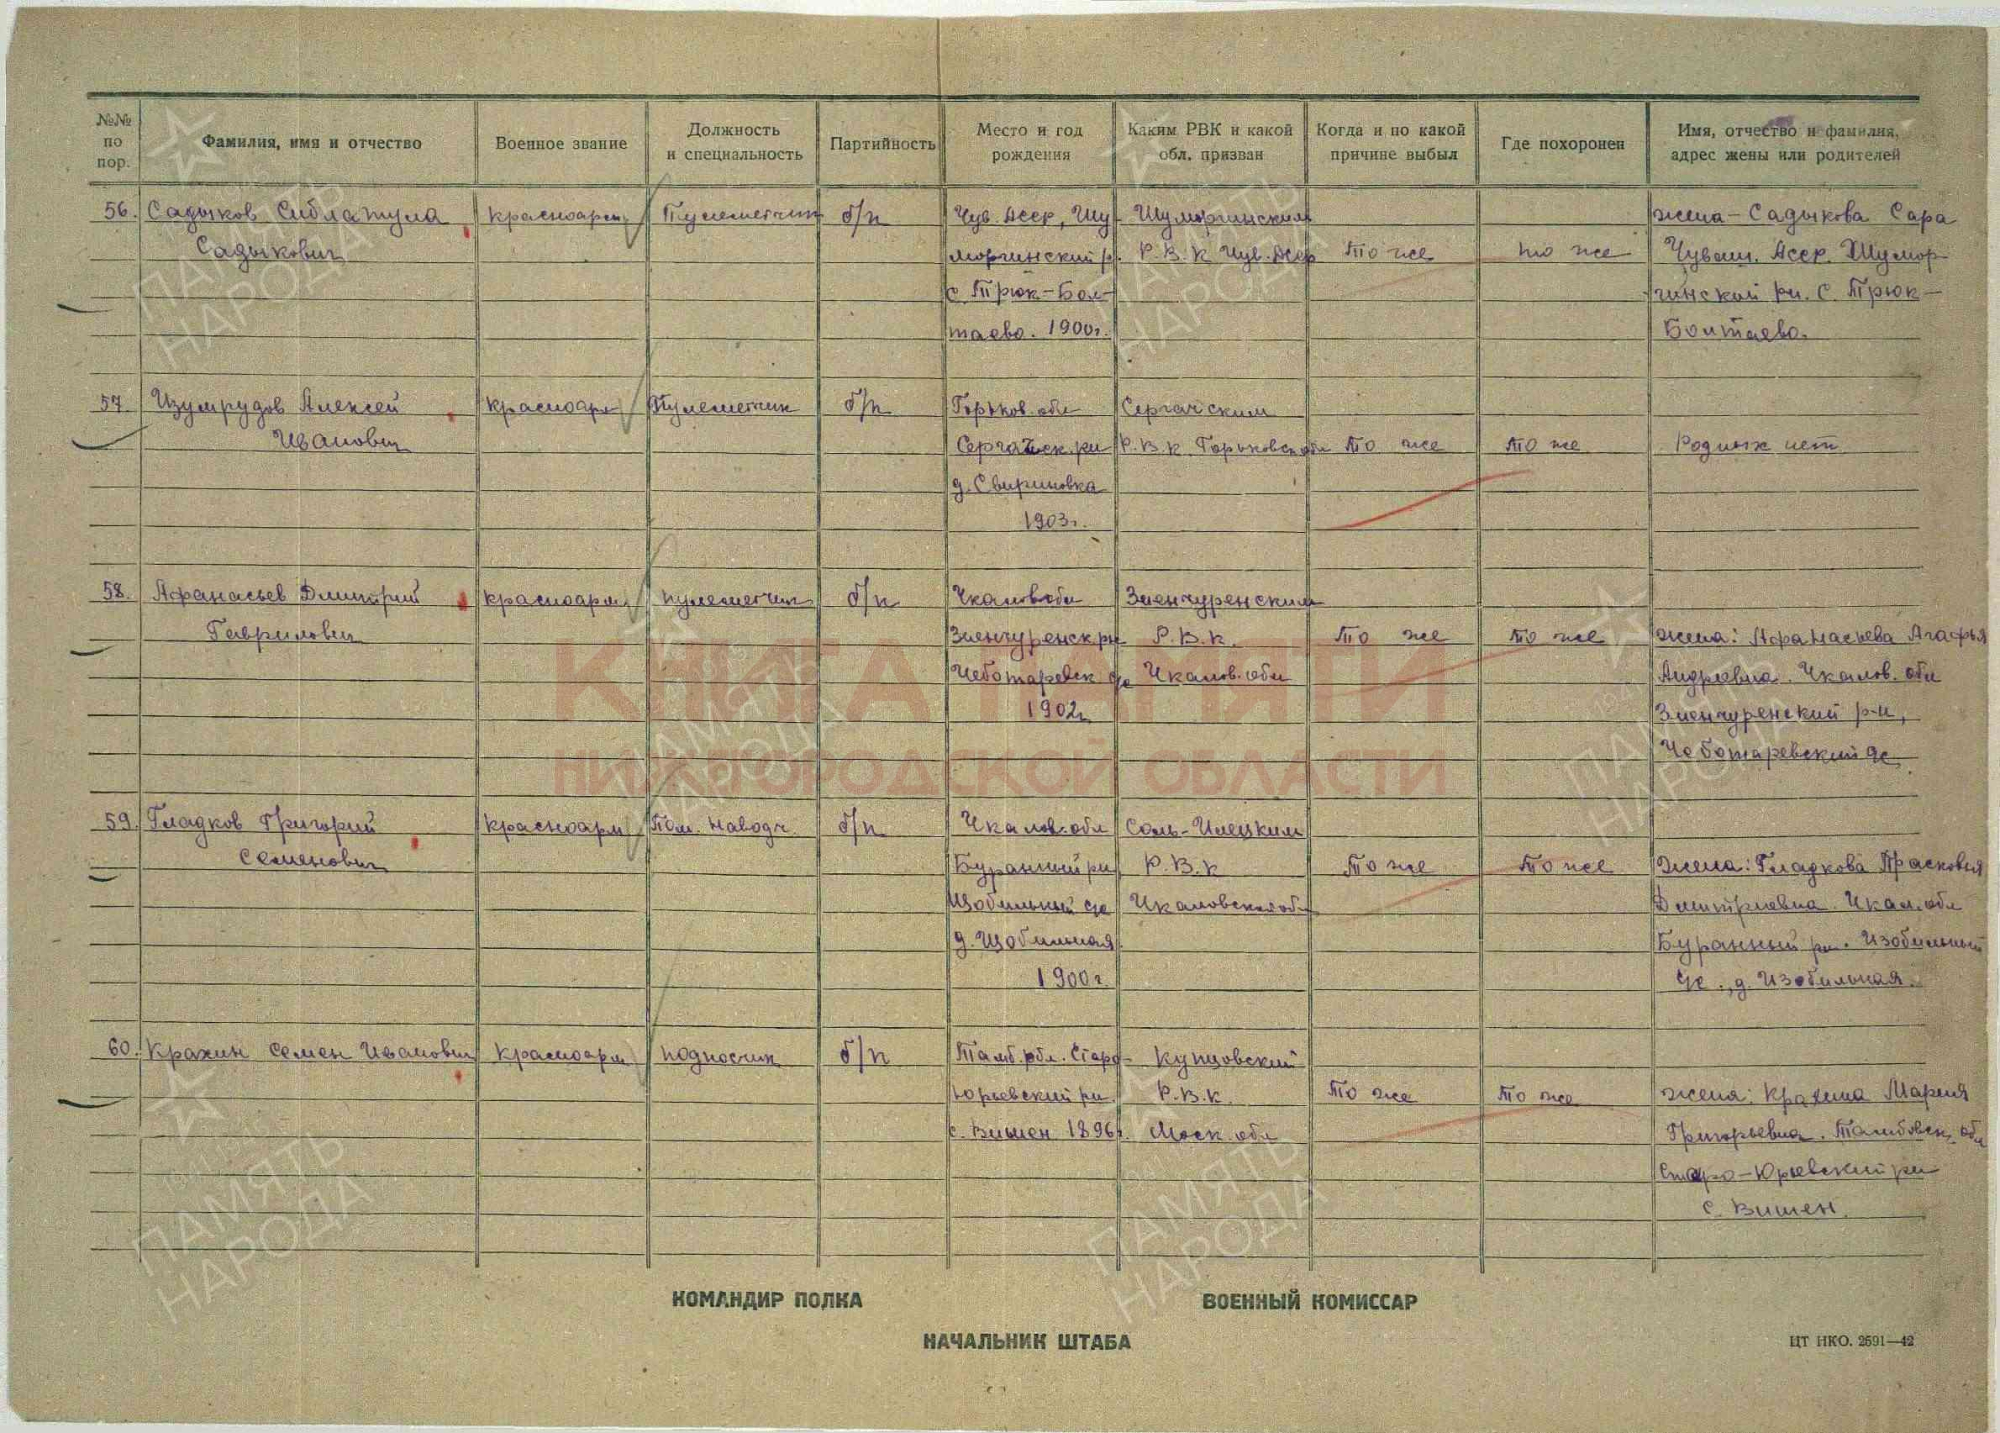 №№ по пор.
Фамилия, имя и отчество
Военное звание
Должность и специальность
Партийность
Место и год рождения
Каким РВК и какой обл. призван
Когда и по какой причине выбыл
Где похоронен
Имя, отчество и фамилия, адрес жены или родителей
56. Садыков Сиблатула красноарм Пулеметчик б/п Чув. Асср, Шу- Шумергинским жена – Садыкова Сара
Садыкович моргинский р. Р.В.К Чув. Асср То же то же Чуваш. Асср. Шумор-
с. Трюк-Бол- гинский рн. С. Трюк-
таево. 1900г. Болтаево.
57. Изумрудов Алексей красноарм Пулеметчик б/п Горьков. обл Сергачским
Иванович Сергачск. рн Р.В.К. Горьковск обл То же То же Родных нет
д. Свириновка
1903г.
58. Афанасьев Дмитрий красноарм. пулеметчик б/п Чкалов обл Зиенчуренским
Гаврилович Зиенчуренск рн Р.В.К. То же то же жена: Афанасьева Агафья
Чеботаревск с/с Чкалов. обл Андревна. Чкалов. обл
1902г Зиенчуренский р-н,
Чеботаревский с/с
59. Гладков Григорий красноарм Пом. наводч. б/п Чкалов. обл Соль-Илецким
Семенович Буранный рн Р.В.К То же То же Жена: Гладкова Прасковья
Изобильный с/с Чкаловской обл Дмитриевна. Чкал. обл
д. Изобильная Буранный рн. Изобильный
1900г. с/с., д. Изобильная.
60. Крахин Семен Иванович красноарм подносчик б/п Тамб. обл. Старо- Купцовский
Юрьевский рн. Р.В.К. То же То же жена: Крахина Мария
с. Вишен 1896г. Моск. обл Григорьевна. Тамбовск. обл
Старо-Юрьевский рн
с. Вишен.
КНИГА ПАМЯТИ
НИЖЕГОРОДСКОЙ ОБЛАСТИ
ПАМЯТЬ НАРОДА
КОМАНДИР ПОЛКА ВОЕННЫЙ КОМИССАР
НАЧАЛЬНИК ШТАБА
ЦТ НКО. 2591—42